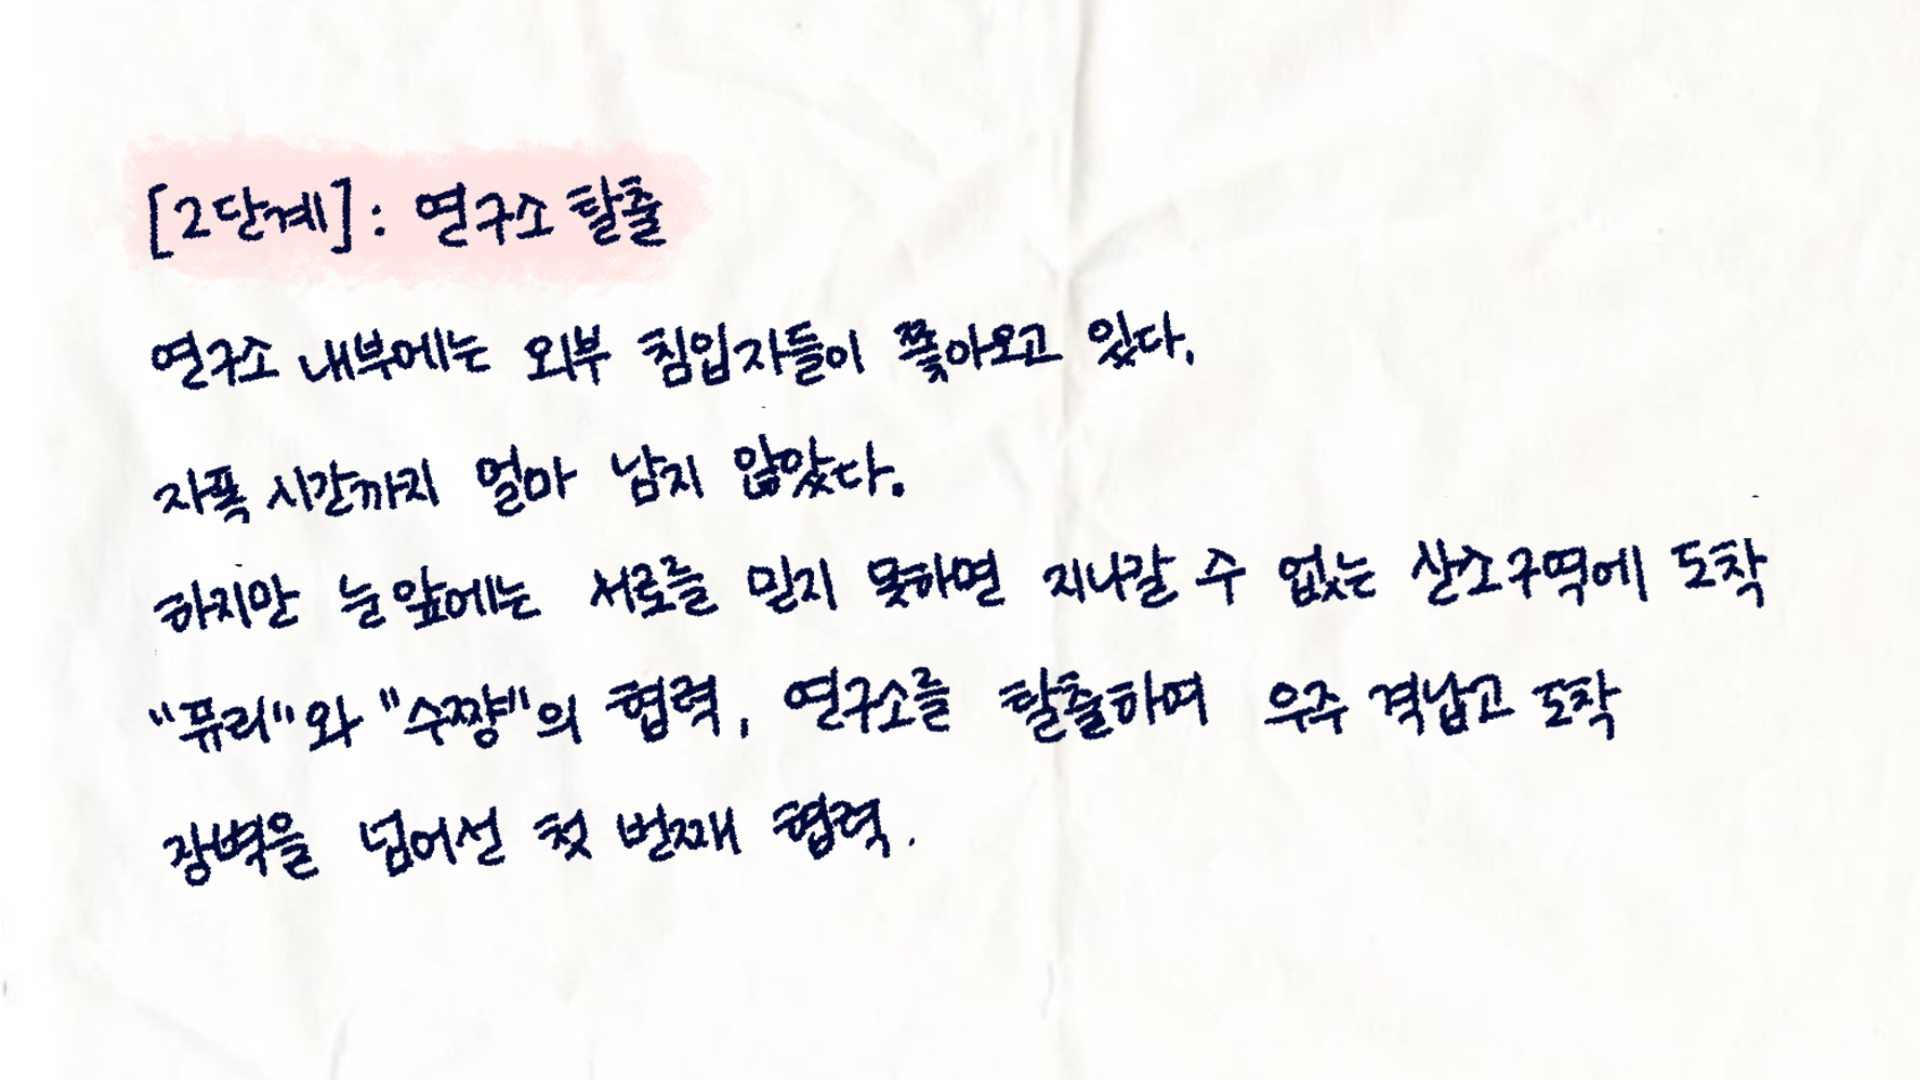 [2단계] : 연구소 탈출
연구소 내부에는 외부 침입자들이 쫓아오고 있다.
자폭 시간까지 얼마 남지 않았다.
하지만 눈앞에는 서로를 믿지 못하면 지나갈 수 없는 산소구역에 도착
"퓨리"와 "수쨩"의 협력, 연구소를 탈출하며 우주 격납고 도착
장벽을 넘어선 첫 번째 협력.